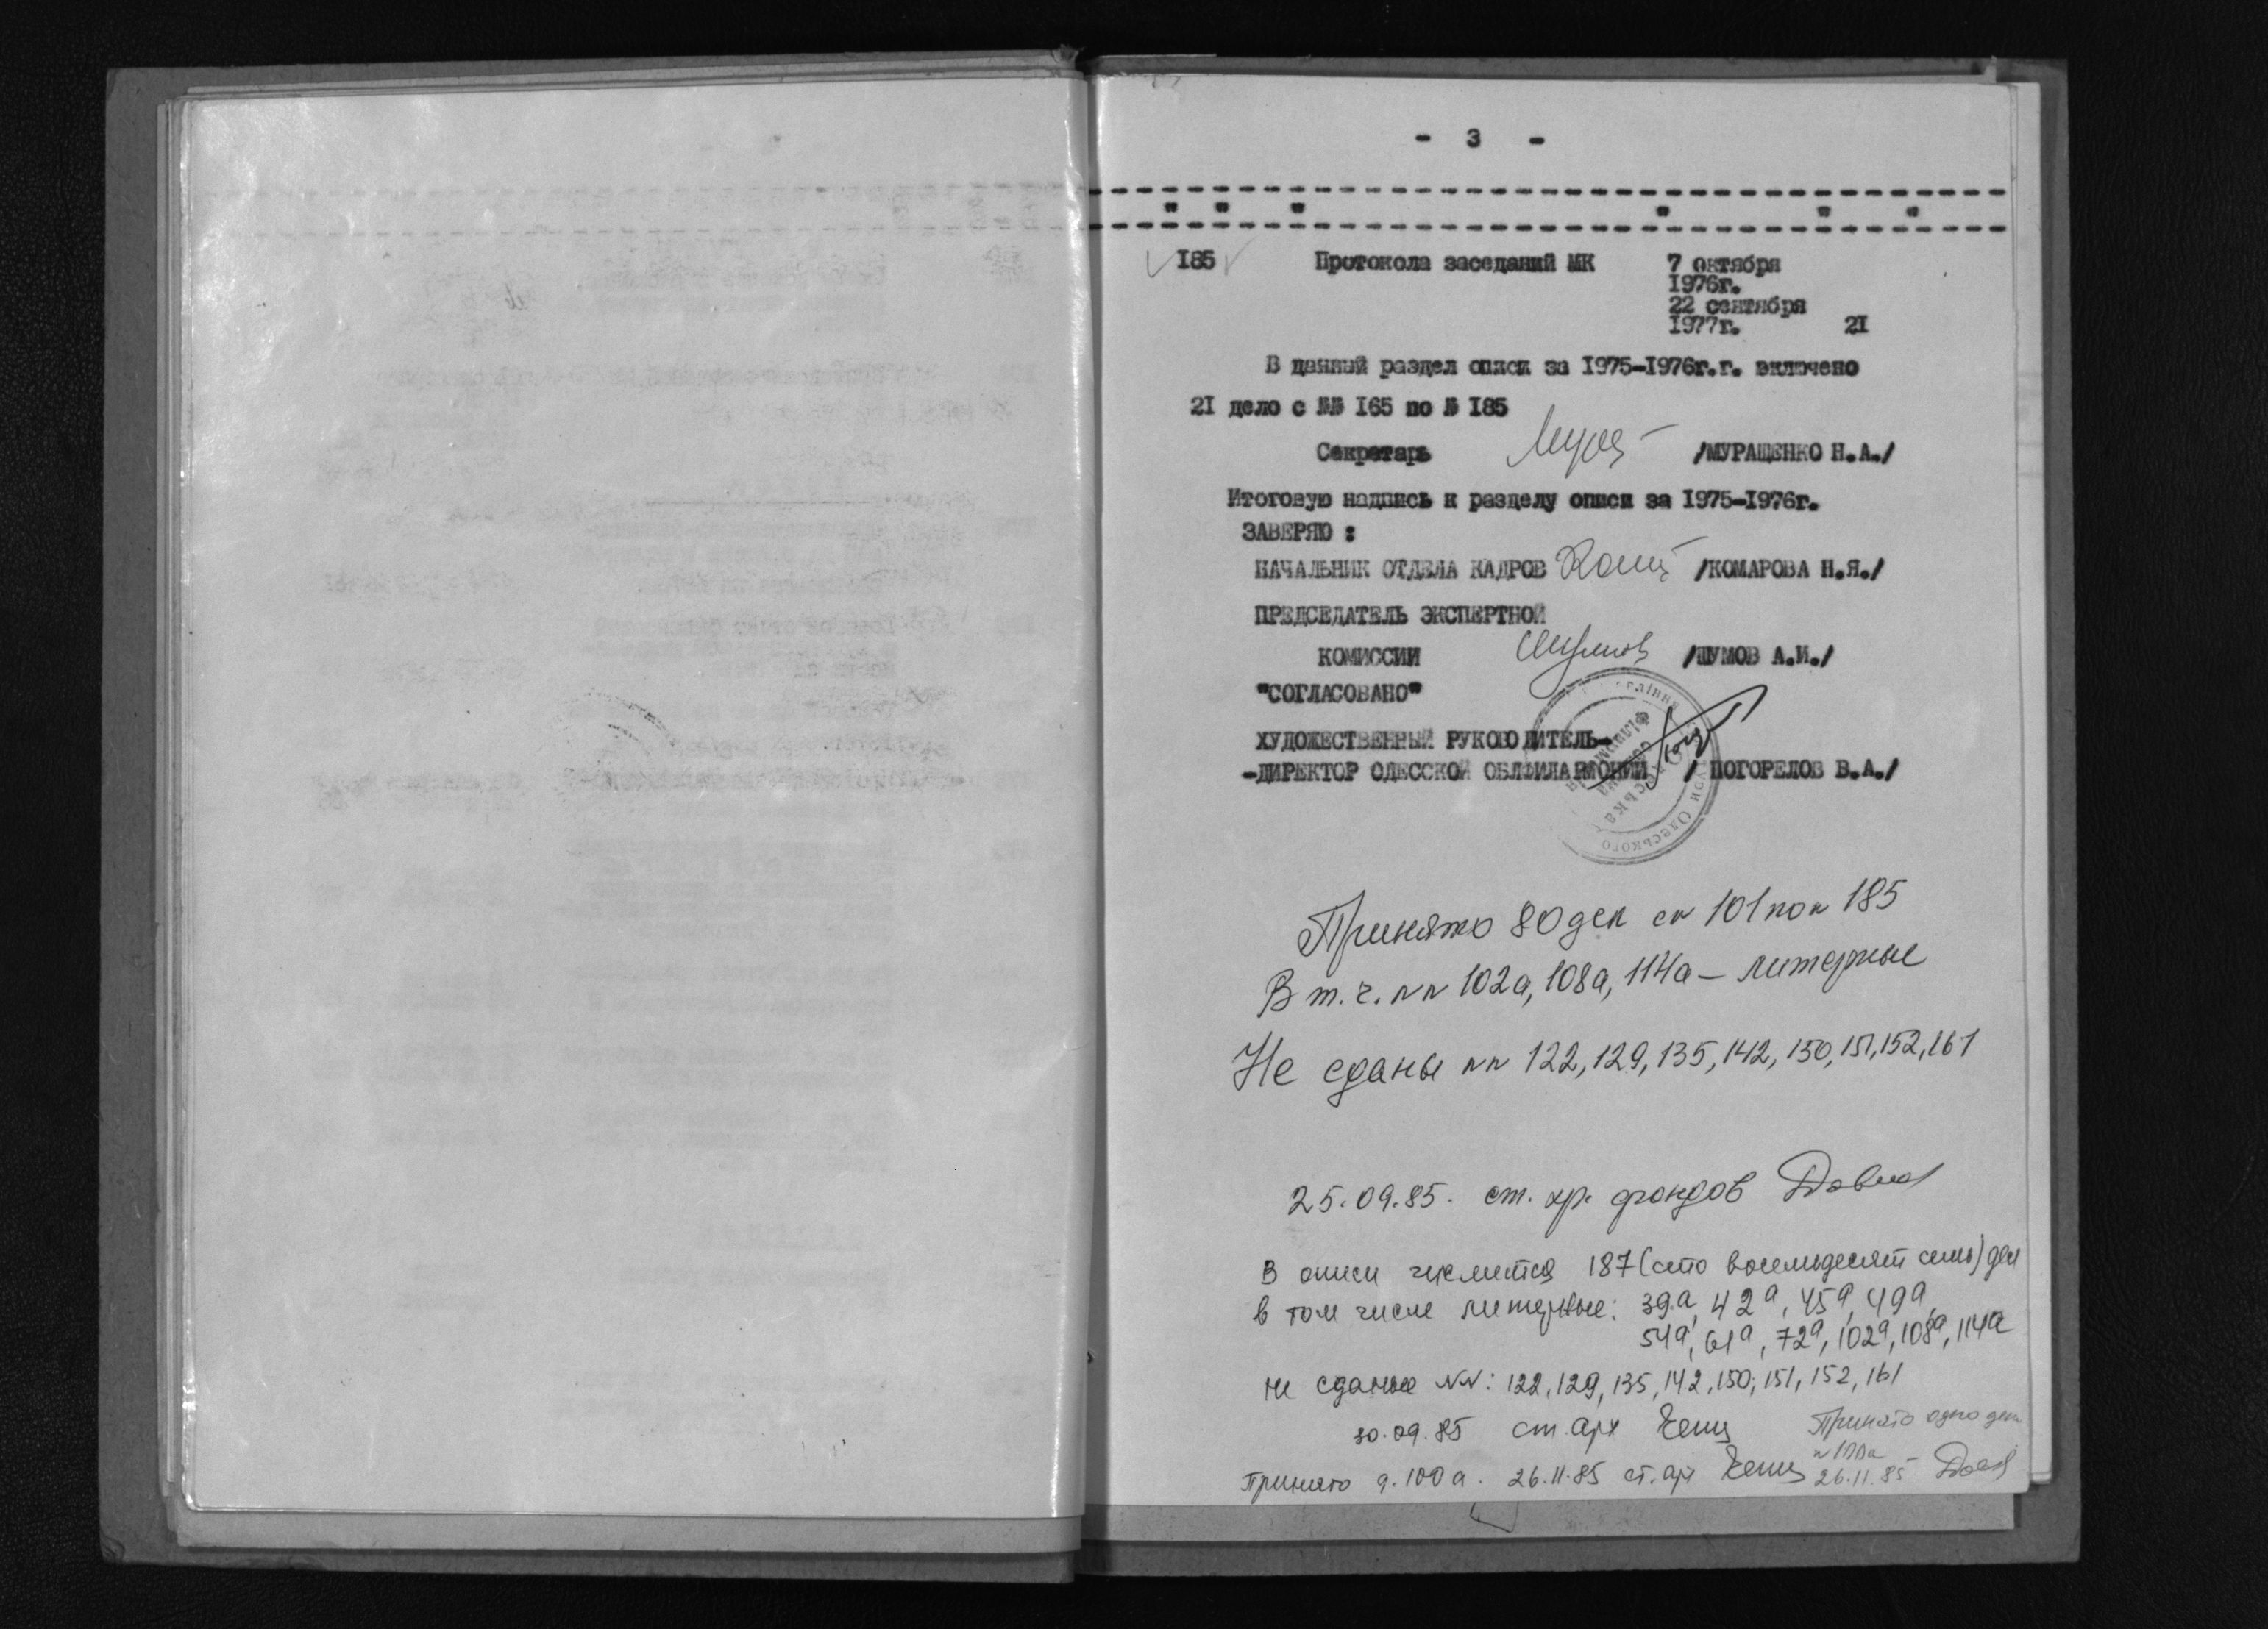 - 3 -
" " " " " "
I85 Протокола заседаний МК 7 октября
I976г.
22 сентября
I977г. 2I
В данный раздел описи за I975-I976г.г. включено
2I дело с №№ I65 по № I85
Секретарь /МУРАЩЕНКО Н.А./
Итоговую надпись к разделу описи за I975-I976г.
ЗАВЕРЯЮ :
НАЧАЛЬНИК ОТДЕЛА КАДРОВ /КОМАРОВА Н.Я./
ПРЕДСЕДАТЕЛЬ ЭКСПЕРТНОЙ
КОМИССИИ /ШУМОВ А.И./
"СОГЛАСОВАНО"
ХУДОЖЕСТВЕННЫЙ РУКОВОДИТЕЛЬ-
-ДИРЕКТОР ОДЕССКОЙ ОБЛФИЛАРМОНИИ / ПОГОРЕЛОВ В.А./
Одеського
Принято 80 дел с № 101 по № 185
В т.ч. №№ 102а, 108а, 114а - литерные
Не сданы №№ 122, 129, 135, 142, 150, 151, 152, 161
25.09.85. ст. хр. фондов
В описи числится 187 (сто восемьдесят семь) дел
в том числе литерные: 39а, 42а, 45а, 49а,
54а, 61а, 72а, 102а, 108а, 114а
не сданые NN: 122, 129, 135, 142, 150, 151, 152, 161
30.09.85 ст. арх
Принято одно дело
Принято д. 100а. 26.11.85 ст. арх
26.11.85